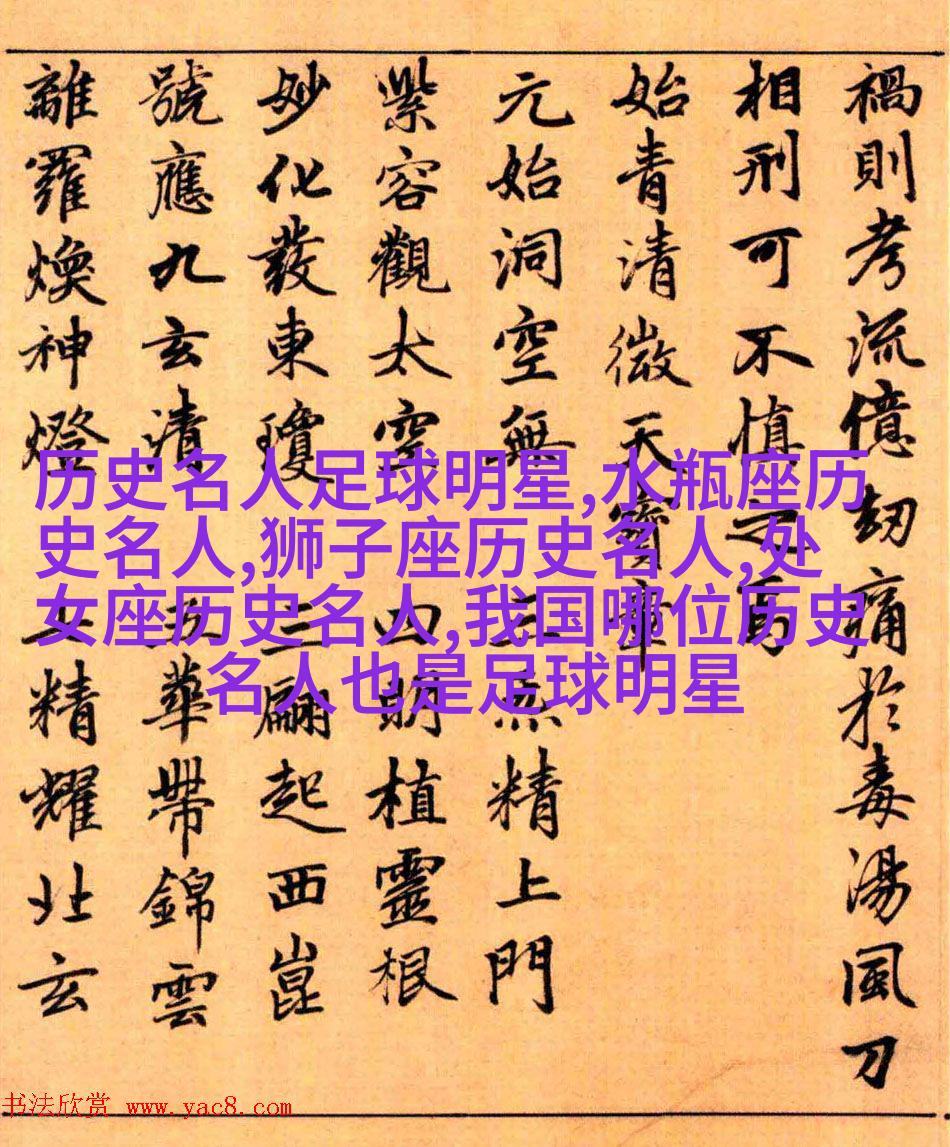 禍則考流億劫痛於毒湯風刀
相刑可不慎之焉
始青清微天寶章
元始洞空無 上炁精上門
紫容觀太空 四明植靈根
妙化發東瓊 三翮起西崑
號應九玄清 華帶錦雲
離羅煥神燈 精耀北玄
历史名人足球明星,水瓶座历
史名人,狮子座历史名人,处
女座历史名人,我国哪位历史
名人也是足球明星
书法欣赏 www.yac8.com